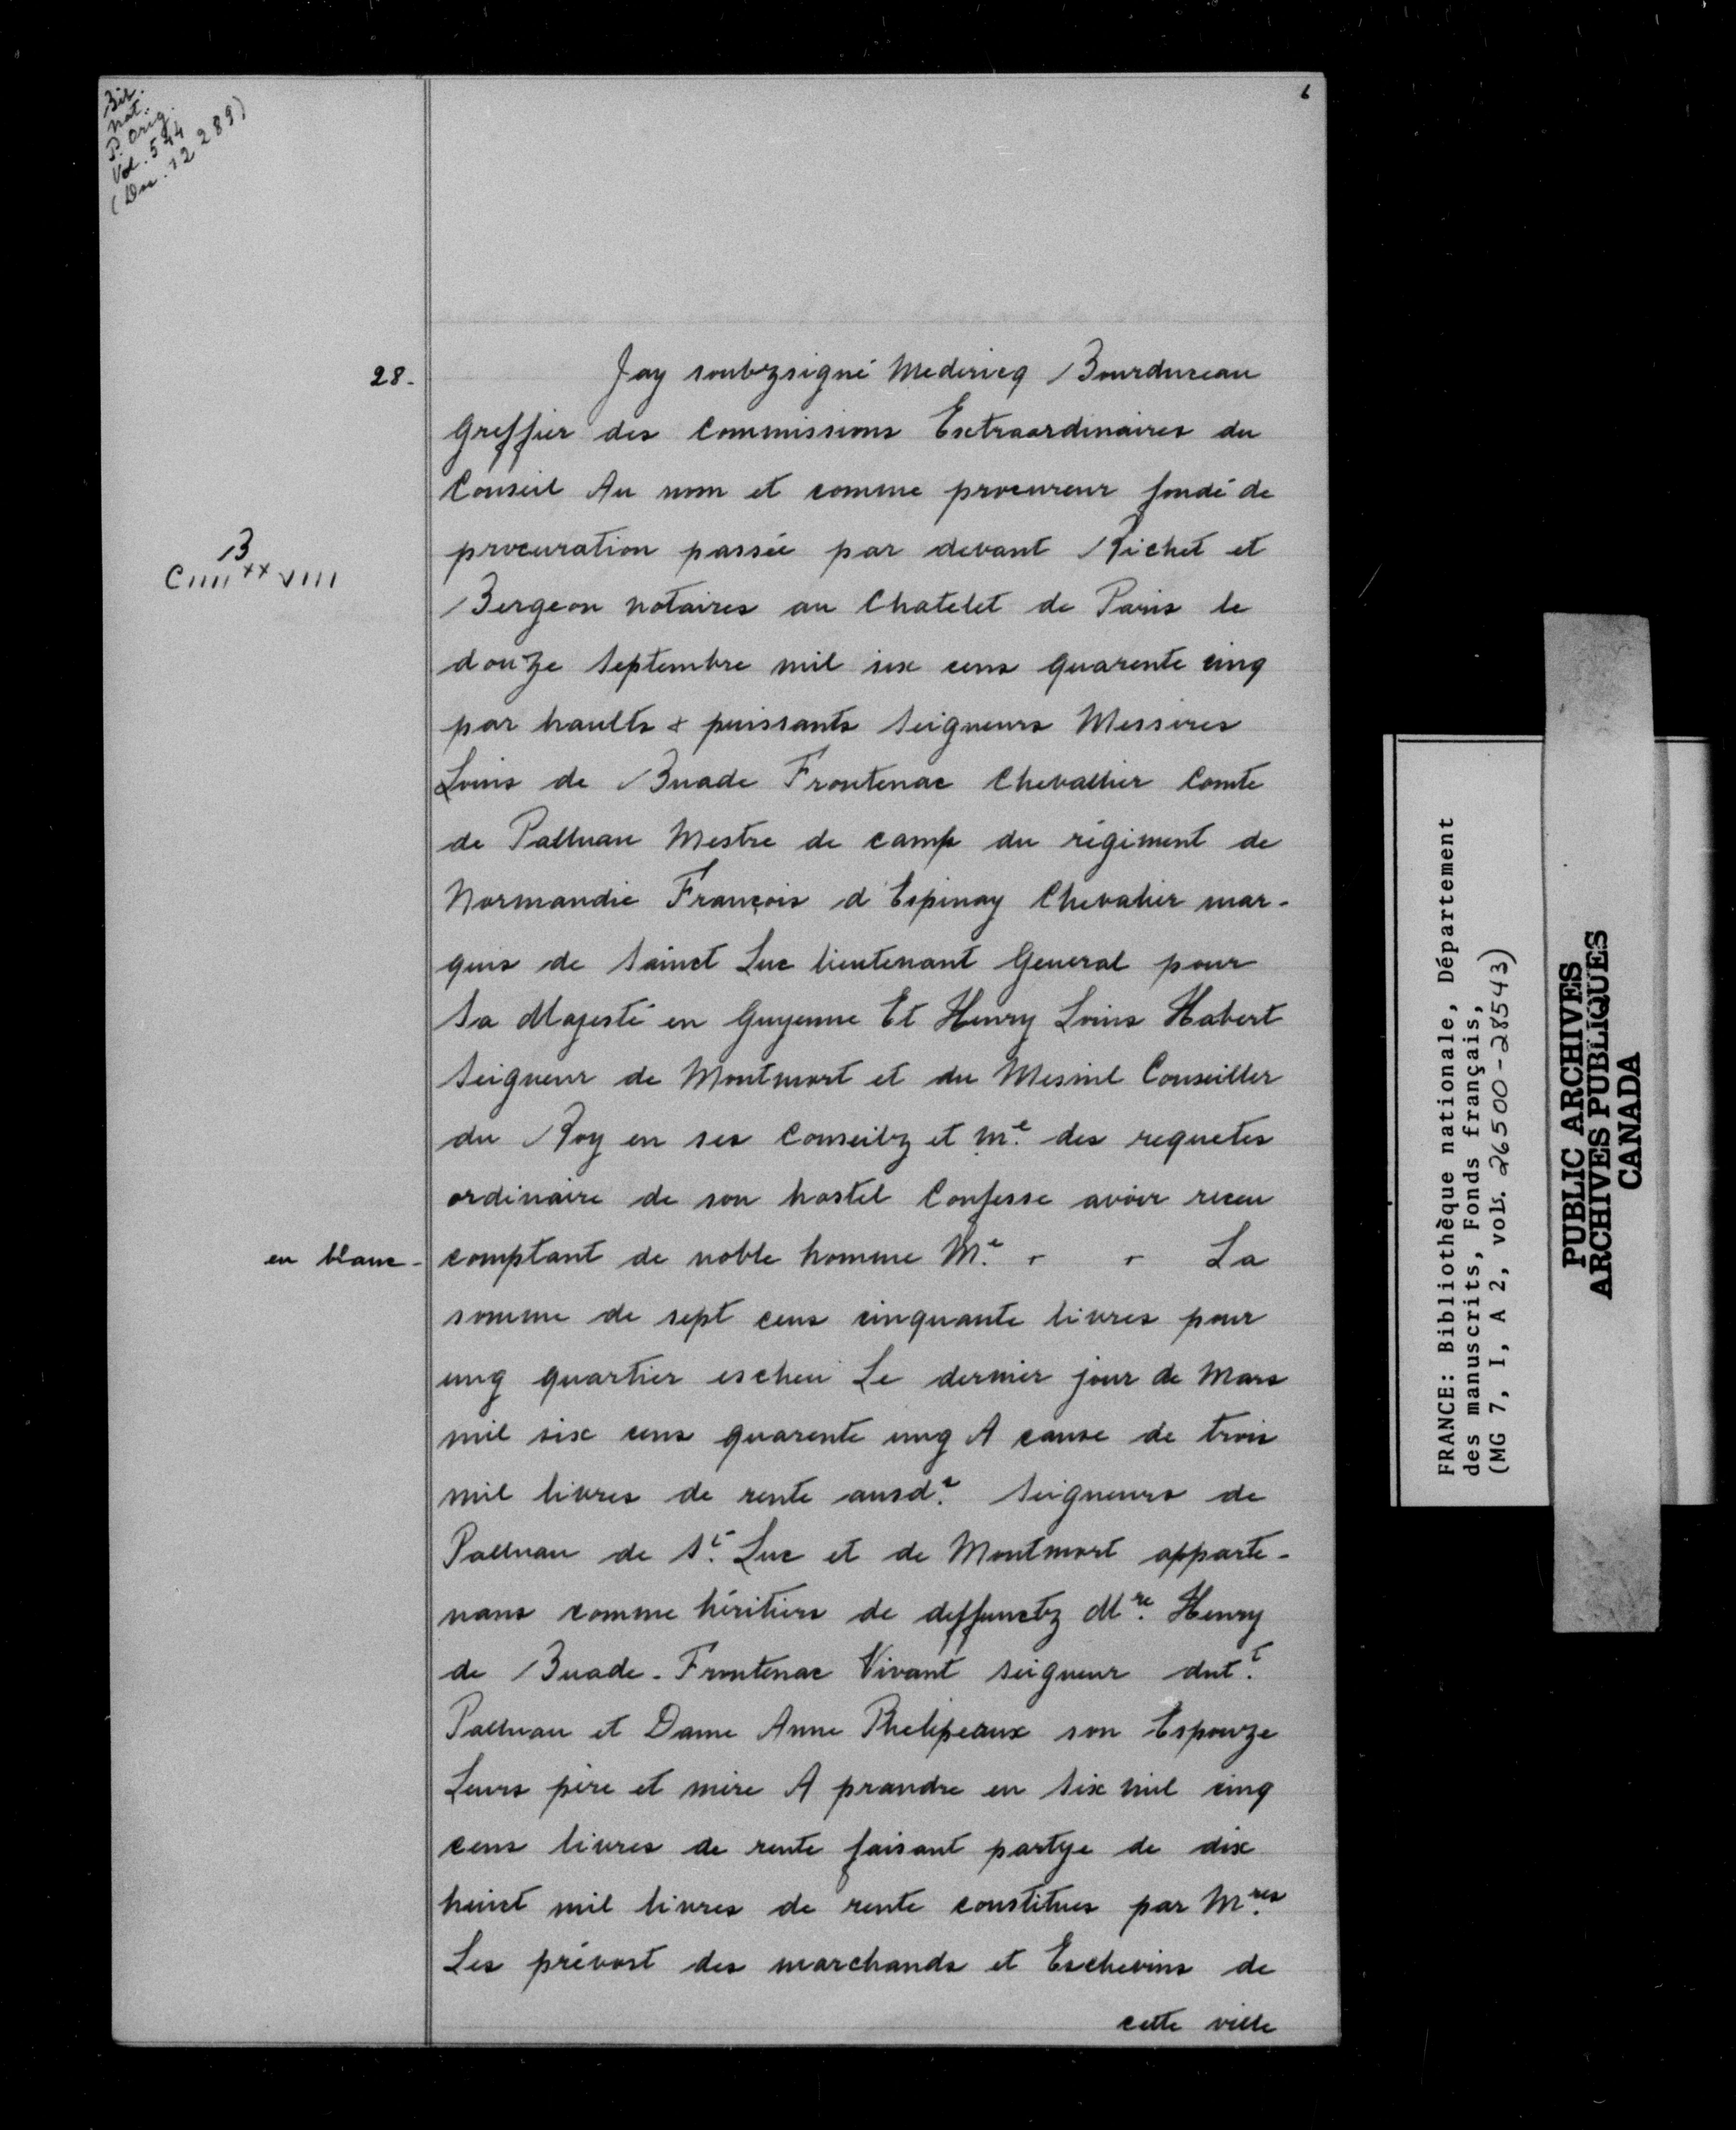 Bib.
Nat.
P. Orig.
Vol. 544
(Dos. 12 289)
6
28.
Jay soubzsigné Medericq Bourduceau
Greffier des Commissions Extraordinaires du
Conseil Au nom et comme procureur fondé de
B
CIIII^xx VIII
procuration passée par devant Richet et
Bergeon notaires au Chatelet de Paris le
douze Septembre mil six cens quarente cinq
par haults & puissants Seigneurs Messires
Louis de Buade Frontenac Chevallier Comte
de Palluau Mestre de camp du régiment de
Normandie François d'Espinay Chevalier mar-
quis de Sainct Luc lieutenant General pour
Sa Majesté en Guyenne Et Henry Louis Habert
Seigneur de Montmort et du Mesnil Conseiller
du Roy en ses Conseilz et m.e des requetes
ordinaire de son hostel Confesse avoir receu
en blanc - comptant de noble homme M.e - - La
somme de sept cens cinquante livres pour
ung quartier escheu Le dernier jour de Mars
mil six cens quarente ung A cause de trois
mil livres de rente ausd.s Seigneurs de
Palluau de S.t Luc et de Montmort apparte-
nans comme héritiers de deffunctz M.re Henry
de Buade-Frontenac Vivant seigneur dut.t
Palluau et Dame Anne Phelipeaux son Espouze
Leurs père et mère A prandre en Six mil cinq
cens livres de rente faisant partye de dix
huict mil livres de rente constitues par M.res
Les prévost des marchands et Eschevins de
cette ville
FRANCE: Bibliothèque nationale, Département
des manuscrits, Fonds français,
(MG 7, I, A 2, vols. 26500-28543)
PUBLIC ARCHIVES
ARCHIVES PUBLIQUES
CANADA